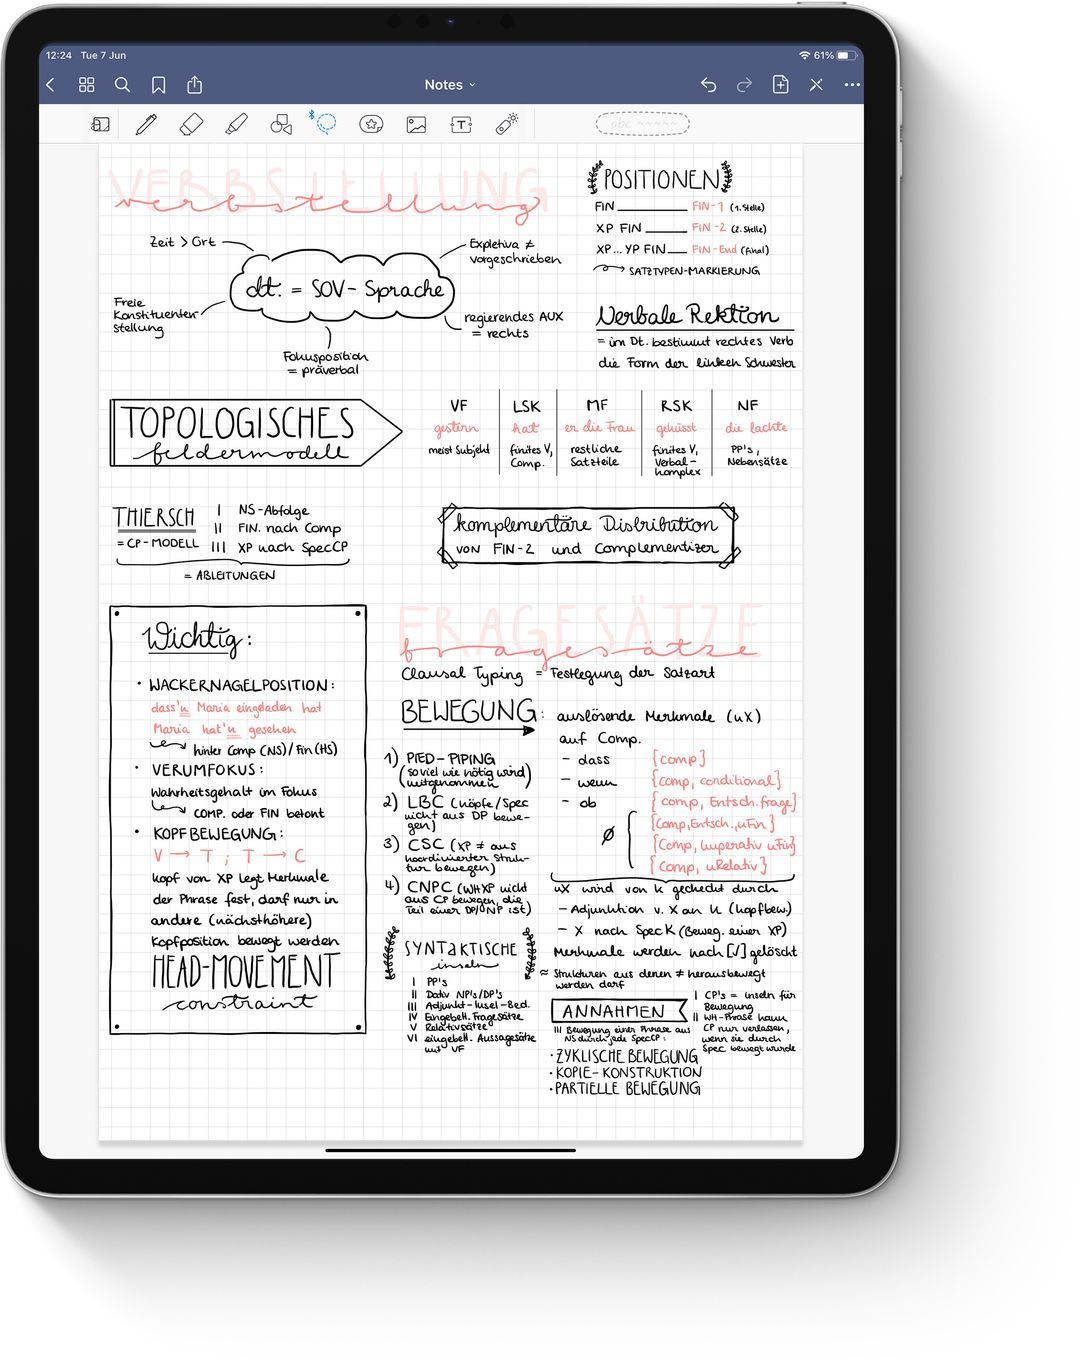 12:24 Tue 7 Jun
61%
Notes
T
abc
VERBSTELLUNG
verbstellung
Zeit > Ort
Expletiva ≠
vorgeschrieben
dt. = SOV- Sprache
Freie
Konstituenten-
stellung
regierendes AUX
= rechts
Fokusposition
= präverbal
POSITIONEN
FIN ________ FIN-1 (1. Stelle)
XP FIN ________ FIN-2 (2. Stelle)
XP... YP FIN ____ FIN-End (final)
SATZTYPEN-MARKIERUNG
Verbale Rektion
= im Dt. bestimmt rechtes Verb
die Form der linken Schwester
TOPOLOGISCHES
feldermodell
VF LSK MF RSK NF
gestern hat er die Frau geküsst die lachte
meist Subjekt
finites V,
Comp.
restliche
Satzteile
finites V,
Verbal-
komplex
PP's,
Nebensätze
THIERSCH
= CP-MODELL
I NS-Abfolge
II FIN. nach Comp
III XP nach SpecCP
= ABLEITUNGEN
komplementäre Distribution
VON FIN-2 und Complementizer
Wichtig:
• WACKERNAGELPOSITION:
dass'n Maria eingeladen hat
Maria hat'n gesehen
hinter Comp (NS)/Fin(HS)
• VERUMFOKUS:
Wahrheitsgehalt im Fokus
COMP. oder FIN betont
• KOPFBEWEGUNG:
V → T ; T → C
kopf von XP legt Merkmale
der Phrase fest, darf nur in
andere (nächsthöhere)
Kopfposition bewegt werden
HEAD-MOVEMENT
constraint
FRAGESÄTZE
fragesätze
Clausal Typing = Festlegung der Satzart
BEWEGUNG: auslösende Merkmale (uX)
auf Comp.
- dass [comp]
- wenn [comp, conditional]
- ob [comp, Entsch.frage]
Ø [Comp, Entsch., uFin]
[Comp, Imperativ uFin]
[Comp, uRelativ]
1) PIED-PIPING
(soviel wie nötig wird
mitgenommen)
2) LBC (köpfe/Spec
nicht aus DP bewe-
gen)
3) CSC (XP ≠ aus
koordinierter Struk-
tur bewegen)
4) CNPC (WHXP nicht
aus CP bewegen, die
Teil einer DP/NP ist)
uX wird von K gecheckt durch
- Adjunktion v. X an K (kopfbew.)
- X nach SpecK (Beweg. einer XP)
Merkmale werden nach [√] gelöscht
SYNTAKTISCHE
inseln
≈ Strukturen aus denen ≠ herausbewegt
werden darf
I PP's
II Dativ NP's/DP's
III Adjunkt-Insel-Bed.
IV Eingebett. Fragesätze
V Relativsätze
VI eingebett. Aussagesätze
mit VF
ANNAHMEN
I CP's = inseln für
Bewegung
II WH-Phrase kann
CP nur verlassen,
wenn sie durch
Spec bewegt wurde
III Bewegung einer Phrase aus
NS durch jede SpecCP:
• ZYKLISCHE BEWEGUNG
• KOPIE-KONSTRUKTION
• PARTIELLE BEWEGUNG